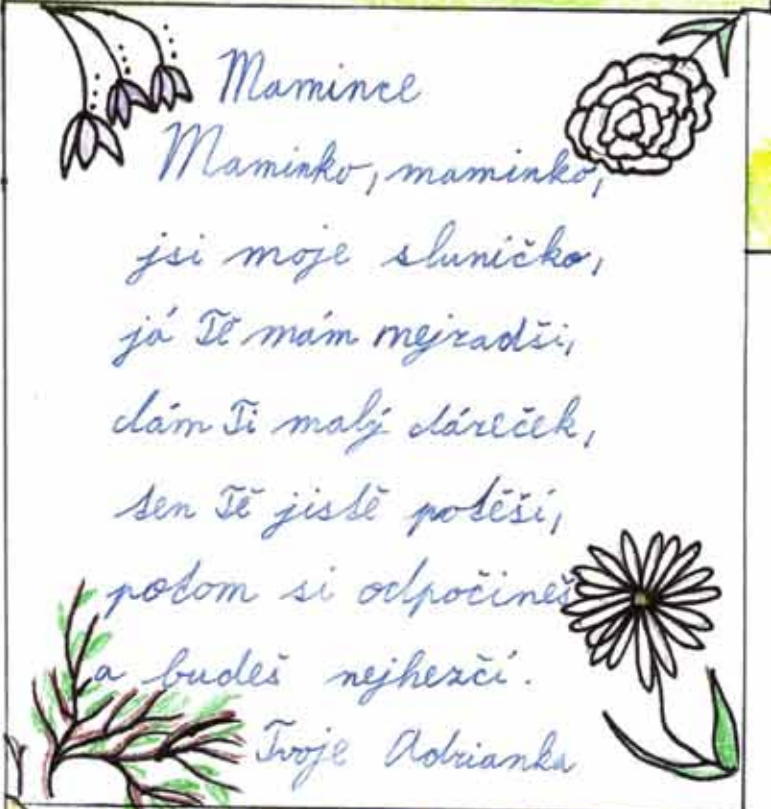 Mamince
Maminko, maminko,
jsi moje sluníčko,
já Tě mám nejradši,
dám Ti malý dáreček,
ten Tě jistě potěší,
potom si odpočineš
a budeš nejhezčí.
Tvoje Adrianka